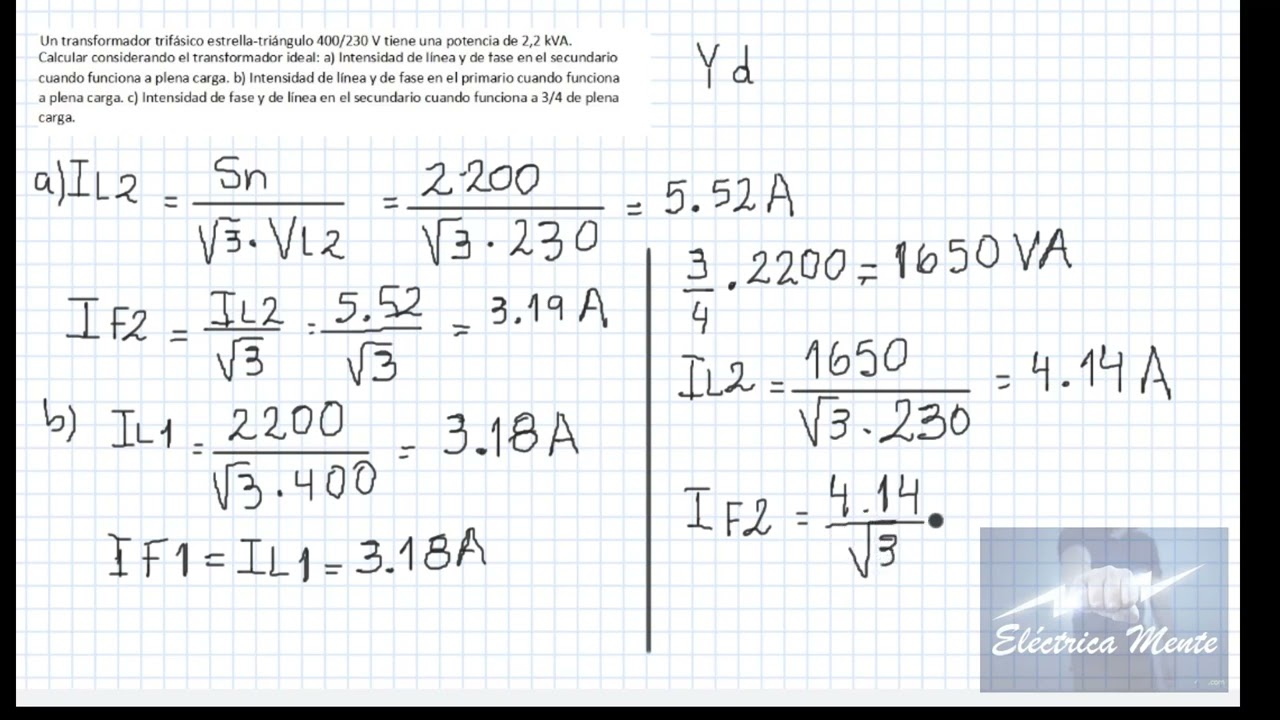 Un transformador trifásico estrella-triángulo 400/230 V tiene una potencia de 2,2 kVA.
Calcular considerando el transformador ideal: a) Intensidad de línea y de fase en el secundario
cuando funciona a plena carga. b) Intensidad de línea y de fase en el primario cuando funciona
a plena carga. c) Intensidad de fase y de línea en el secundario cuando funciona a 3/4 de plena
carga.
Y d
a) IL2 = Sn / √3 · VL2 = 2·200 / √3 · 230 = 5.52 A
IF2 = IL2 / √3 = 5.52 / √3 = 3.19 A
b) IL1 = 2200 / √3 · 400 = 3.18 A
IF1 = IL1 = 3.18 A
3/4 · 2200 = 1650 VA
IL2 = 1650 / √3 · 230 = 4.14 A
IF2 = 4.14 / √3
Eléctrica Mente